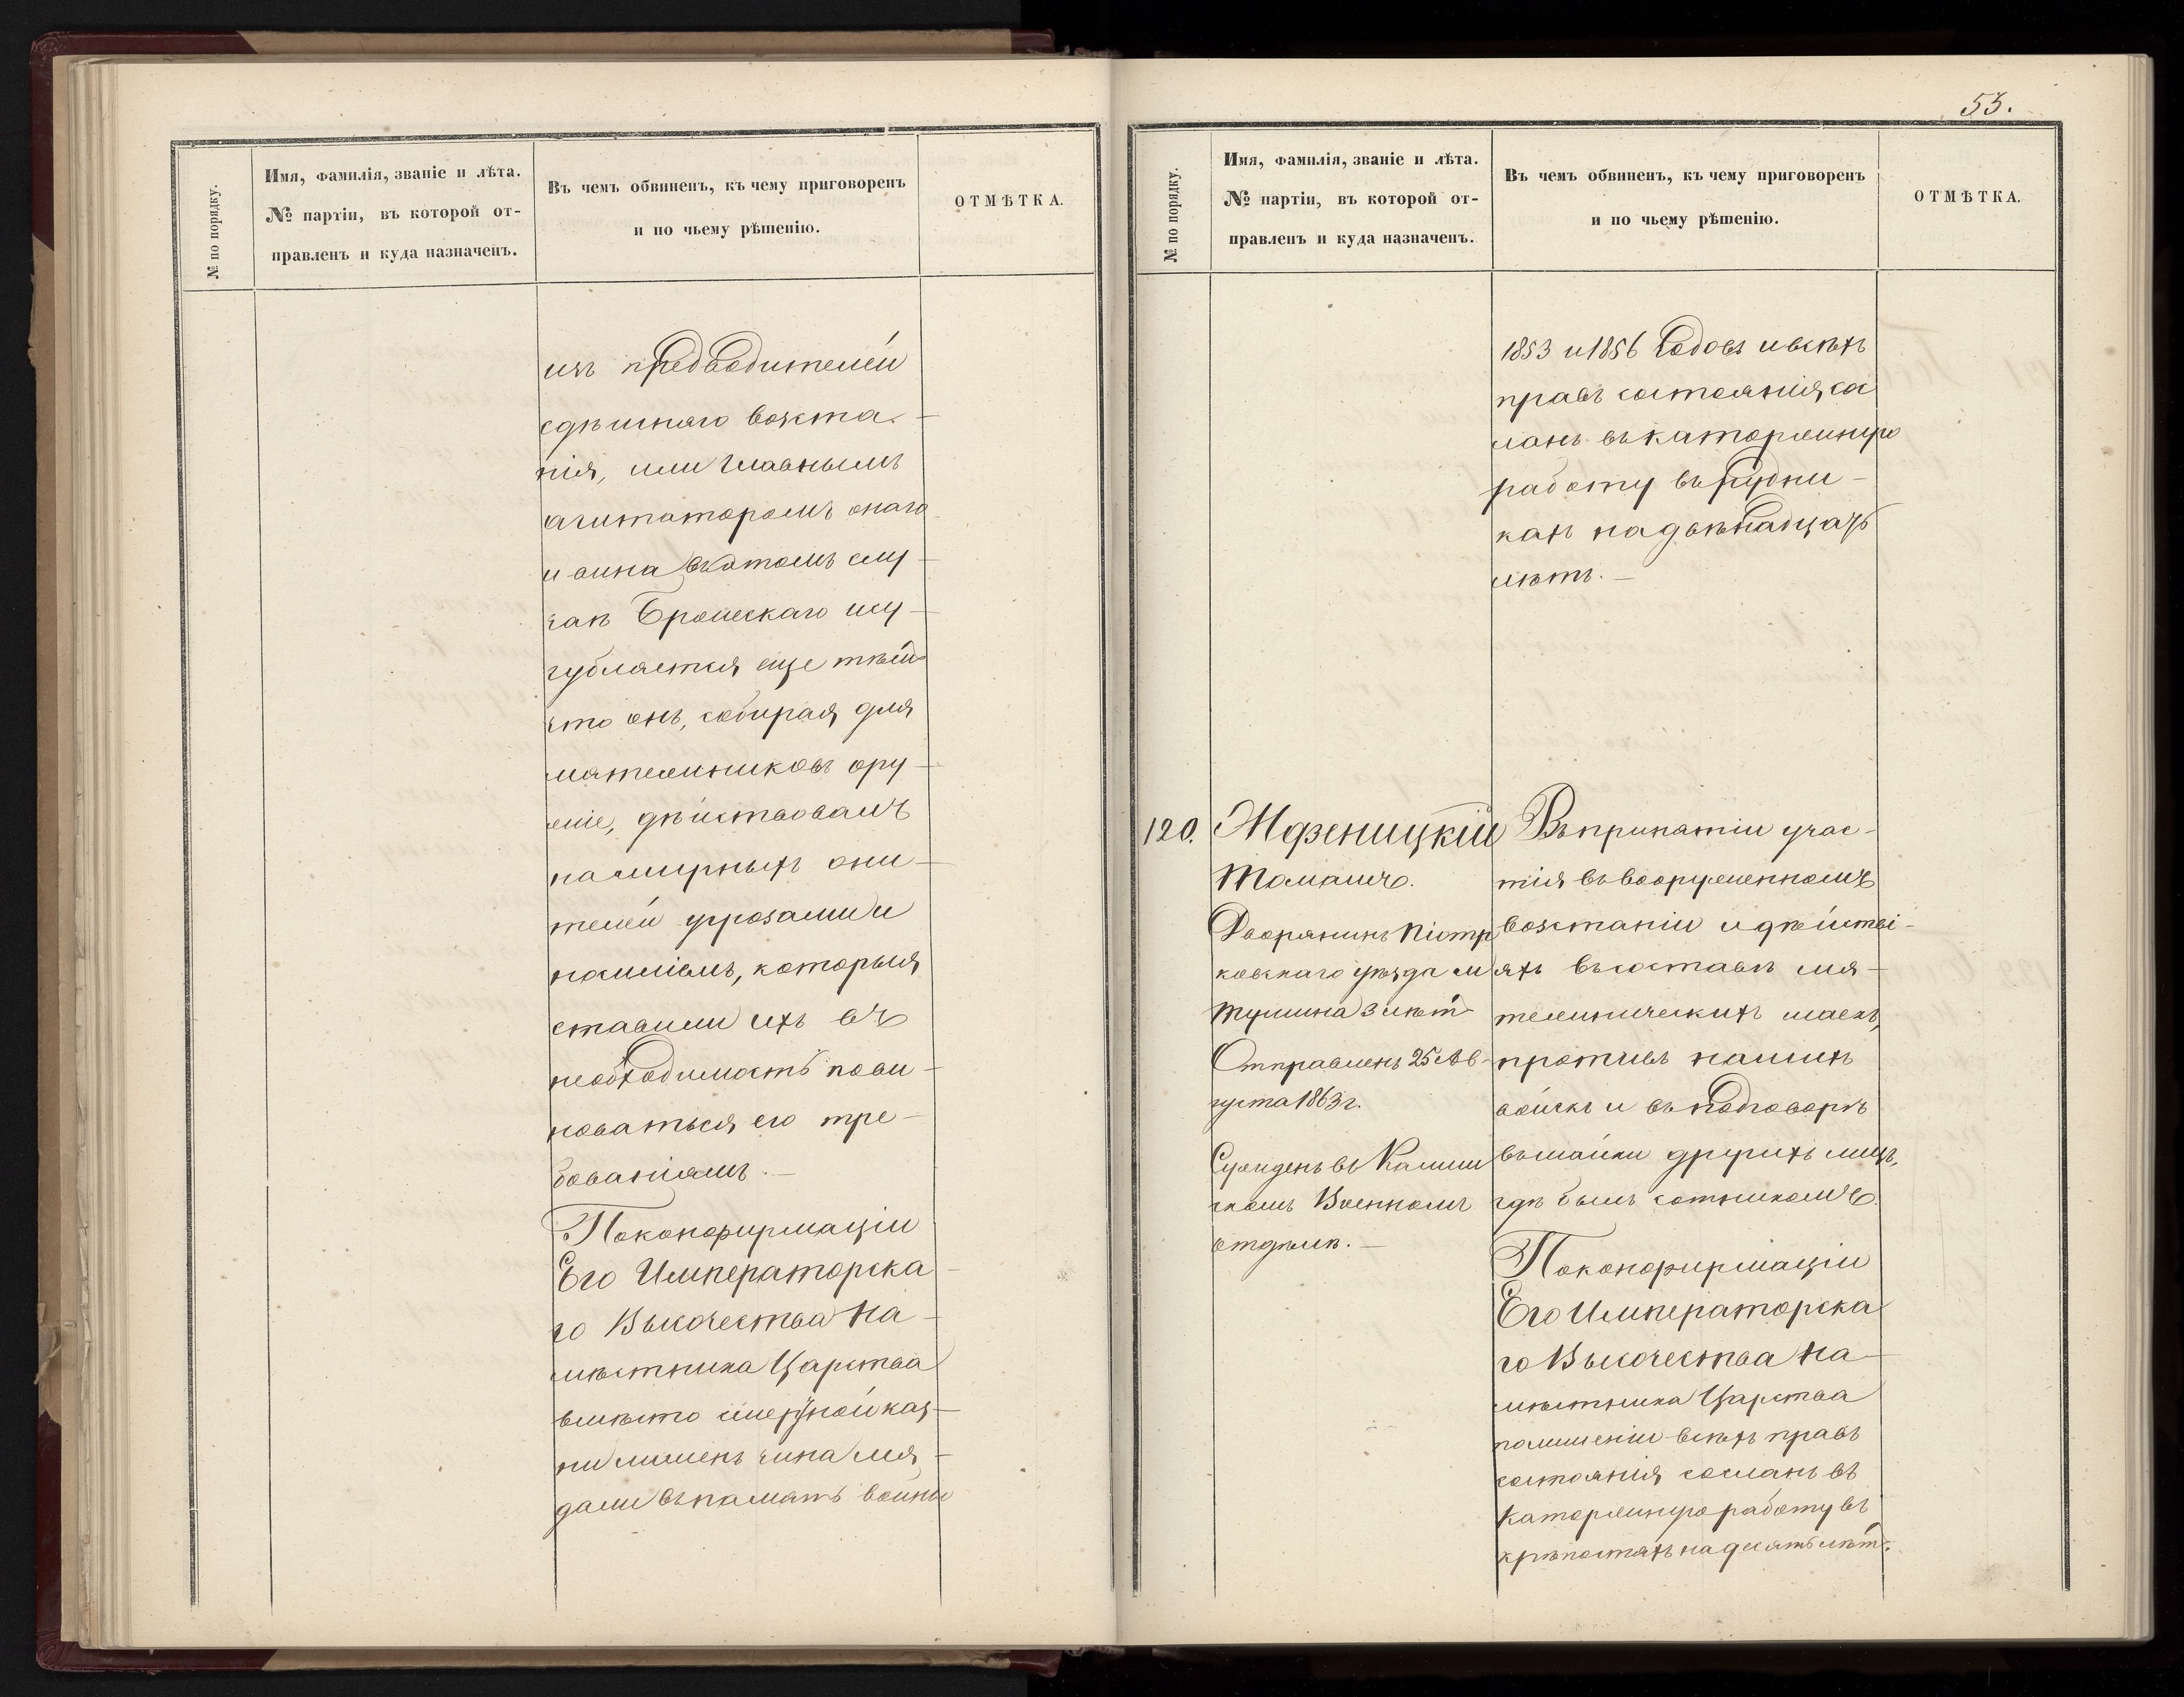 № по порядку.
Имя, фамилія, званіе и лѣта.
№ партіи, въ которой от-
правленъ и куда назначенъ.
Въ чемъ обвиненъ, къ чему приговоренъ
и по чьему рѣшенію.
ОТМѢТКА.
изъ предводителей
здѣшняго возста-
нія, или главнымъ
агитаторомъ онаго
и вина въ этомъ слу-
чаѣ Бронскаго усу-
губляется еще тѣмъ
что онъ, собирая для
мятежниковъ ору-
жіе, дѣйствовалъ
на мирныхъ жи-
телей угрозами и
насиліемъ, которыя
ставили ихъ въ
необходимость пови-
новаться его тре-
бованіямъ.—
По конфирмаціи
Его Императорска-
го Высочества На-
мѣстника Царства
вмѣсто смертной каз-
ни лишенъ чина ме-
дали въ память войны
55.
№ по порядку.
Имя, фамилія, званіе и лѣта.
№ партіи, въ которой от-
правленъ и куда назначенъ.
Въ чемъ обвиненъ, къ чему приговоренъ
и по чьему рѣшенію.
ОТМѢТКА.
1853 и 1856 годовъ и всѣхъ
правъ состоянія, со
сланъ въ каторжную
работу въ рудни-
кахъ на двѣнадцать
лѣтъ.—
120.
Мдзеницкій
Томашъ.
Дворянинъ Піотр
ковскаго уѣзда м
Тушина
Отправленъ 25 Ав-
густа 1863 г.
Сужденъ въ Калиш
скомъ Военномъ
отдѣлѣ.—
Въ принятіи учас-
тія въ вооруженномъ
возстаніи и дѣйстві-
яхъ въ составѣ мя-
тежническихъ шаекъ,
противъ нашихъ
войскъ и въ подговорѣ
въ шайки другихъ лицъ,
гдѣ былъ сотникомъ.
По конфирмаціи
Его Императорска
го Высочества На-
мѣстника Царства
по лишеніи всѣхъ правъ
состоянія сосланъ въ
каторжную работу въ
крѣпостяхъ на десять лѣтъ.